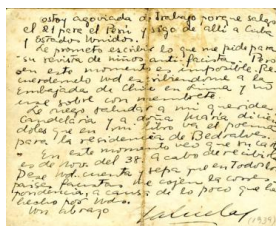 estoy agoviada de trabajo porque salgo
el 21 para el Perú y sigo de allí a Cuba
y Estados Unidos.
Le prometo escribir lo que me pide para
su revista de niños anti-fascista. Pero
en este momento es imposible. Re-
cuerdemelo Ud. escribiendome a la
Embajada de Chile en Lima y
un sobre con membrete
Le ruego saludar a mi querida
Candelaria y a doña María
doles que en mi libro el por
para la residencia de Pedralves.
En este momento veo su car
es de Nov. del 38. Acabo de recibirla
Dese Ud. cuenta y sepa que en Todos los
países fascistas me cojen la corres-
pondencia, a causa de lo poco que he
hecho por Uds.
Un abrazo
(1939)